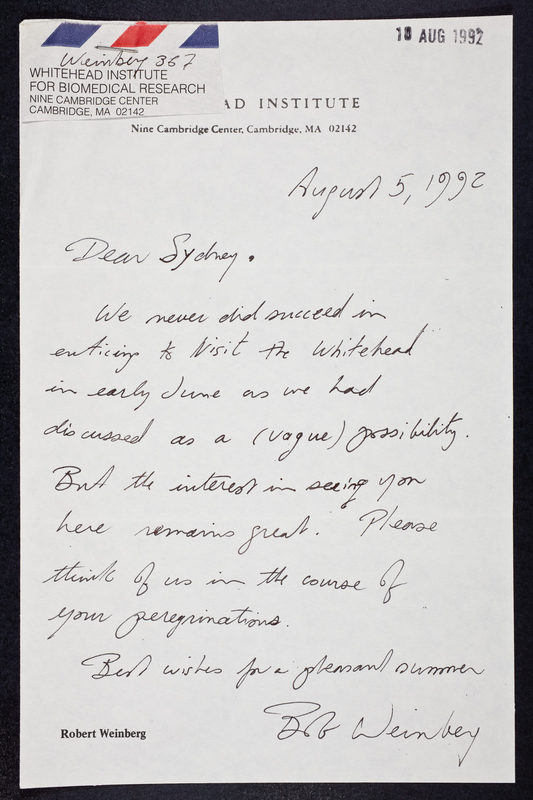 Weinberg 367
WHITEHEAD INSTITUTE
FOR BIOMEDICAL RESEARCH
NINE CAMBRIDGE CENTER
CAMBRIDGE, MA 02142
18 AUG 1992
AD INSTITUTE
Nine Cambridge Center, Cambridge, MA 02142
August 5, 1992
Dear Sydney.
We never did succeed in
enticing to Visit the Whitehead
in early June as we had
discussed as a (vague) possibility.
But the interest in seeing you
here remains great. Please
think of us in the course of
your peregrinations.
Best wishes for a pleasant summer
Bob Weinberg
Robert Weinberg